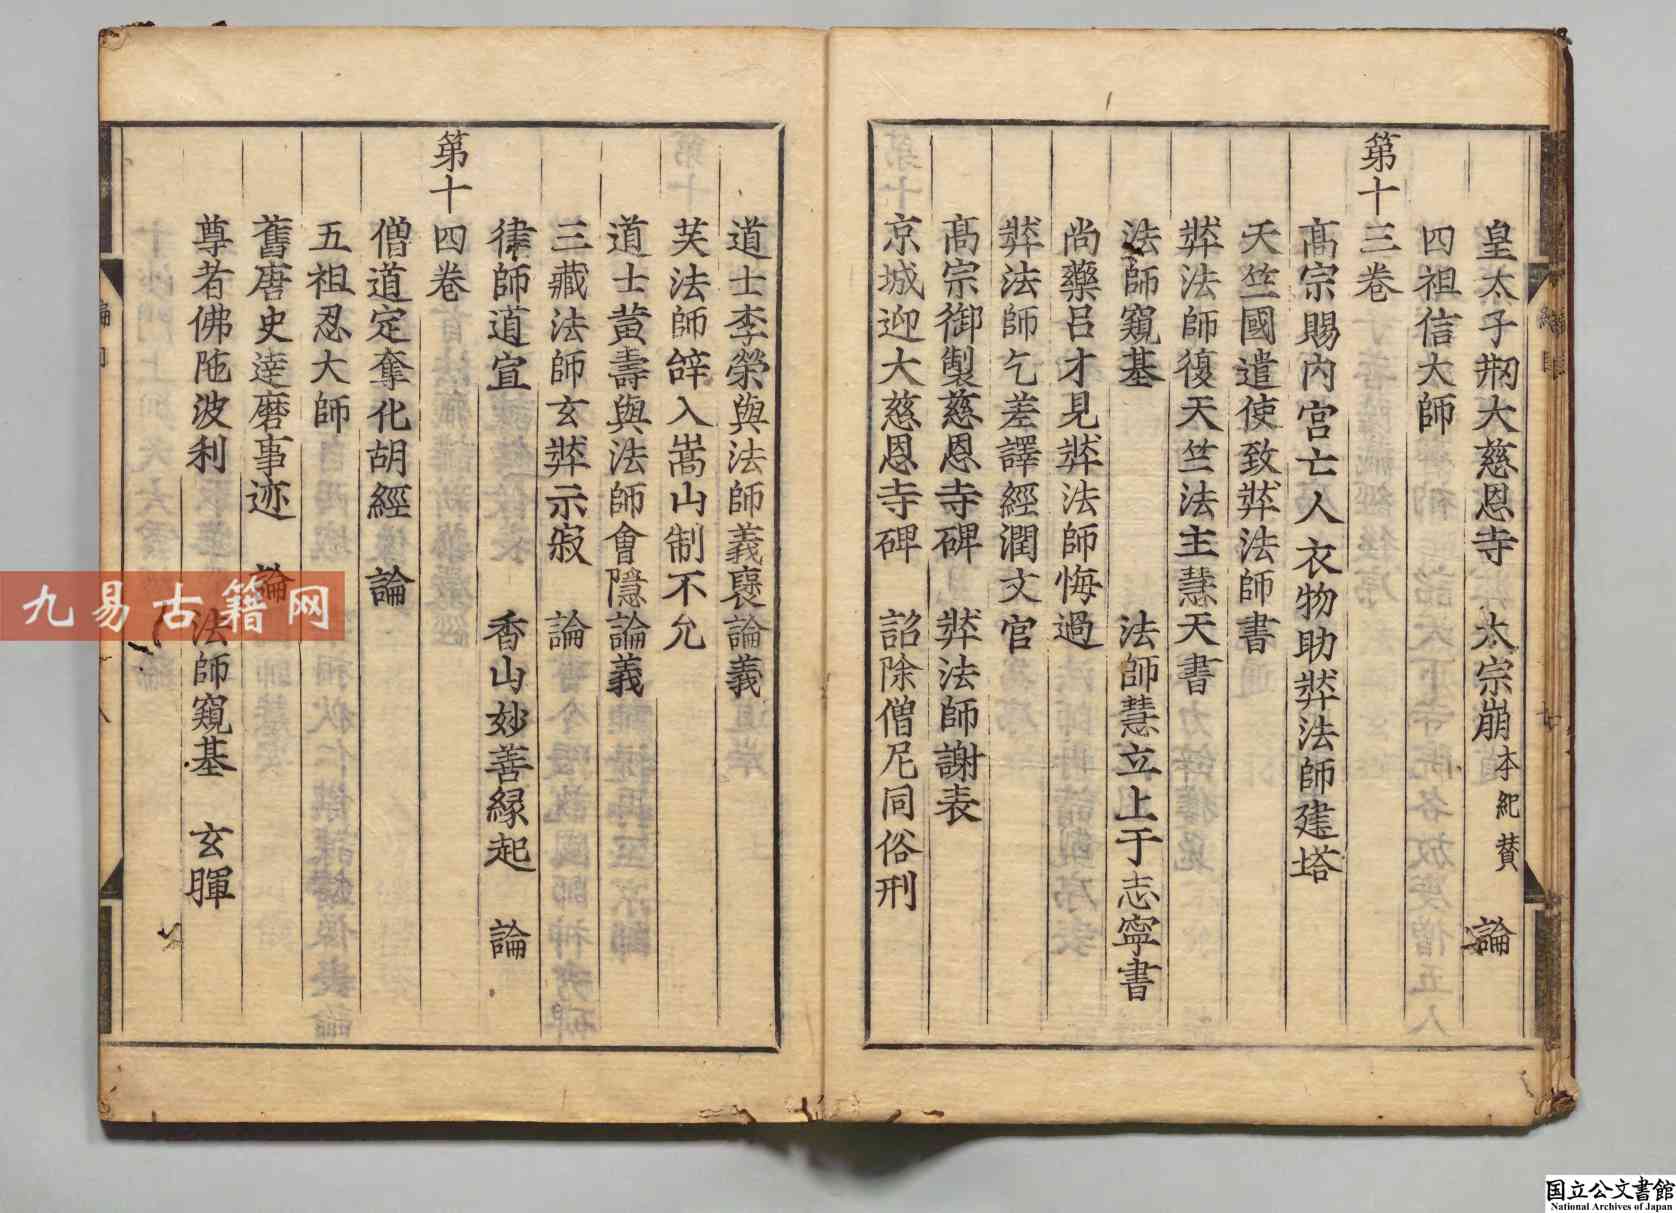 皇太子剏大慈恩寺　太宗崩本紀賛　論
四祖信大師
第十三卷
高宗賜內宮亡人衣物助弉法師建塔
天竺國遣使致弉法師書
弉法師復天竺法主慧天書
法師窺基　法師慧立上于志寧書
尚藥呂才見弉法師悔過
弉法師乞差譯經潤文官
高宗御製慈恩寺碑　弉法師謝表
京城迎大慈恩寺碑　詔除僧尼同俗刑
道士李榮與法師義褒論義
芙法師辝入嵩山制不允
道士黃壽與法師會隱論義
三藏法師玄弉示寂　論
律師道宣　香山妙善縁起　論
第十四卷
僧道定奪化胡經　論
五祖忍大師
舊唐史逹磨事迹　論
尊者佛陁波利　法師窺基　玄暉
九易古籍网
国立公文書館
National Archives of Japan